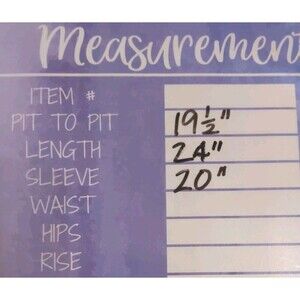 Measuremen
ITEM #
PIT TO PIT 19½"
LENGTH 24"
SLEEVE 20"
WAIST
HIPS
RISE